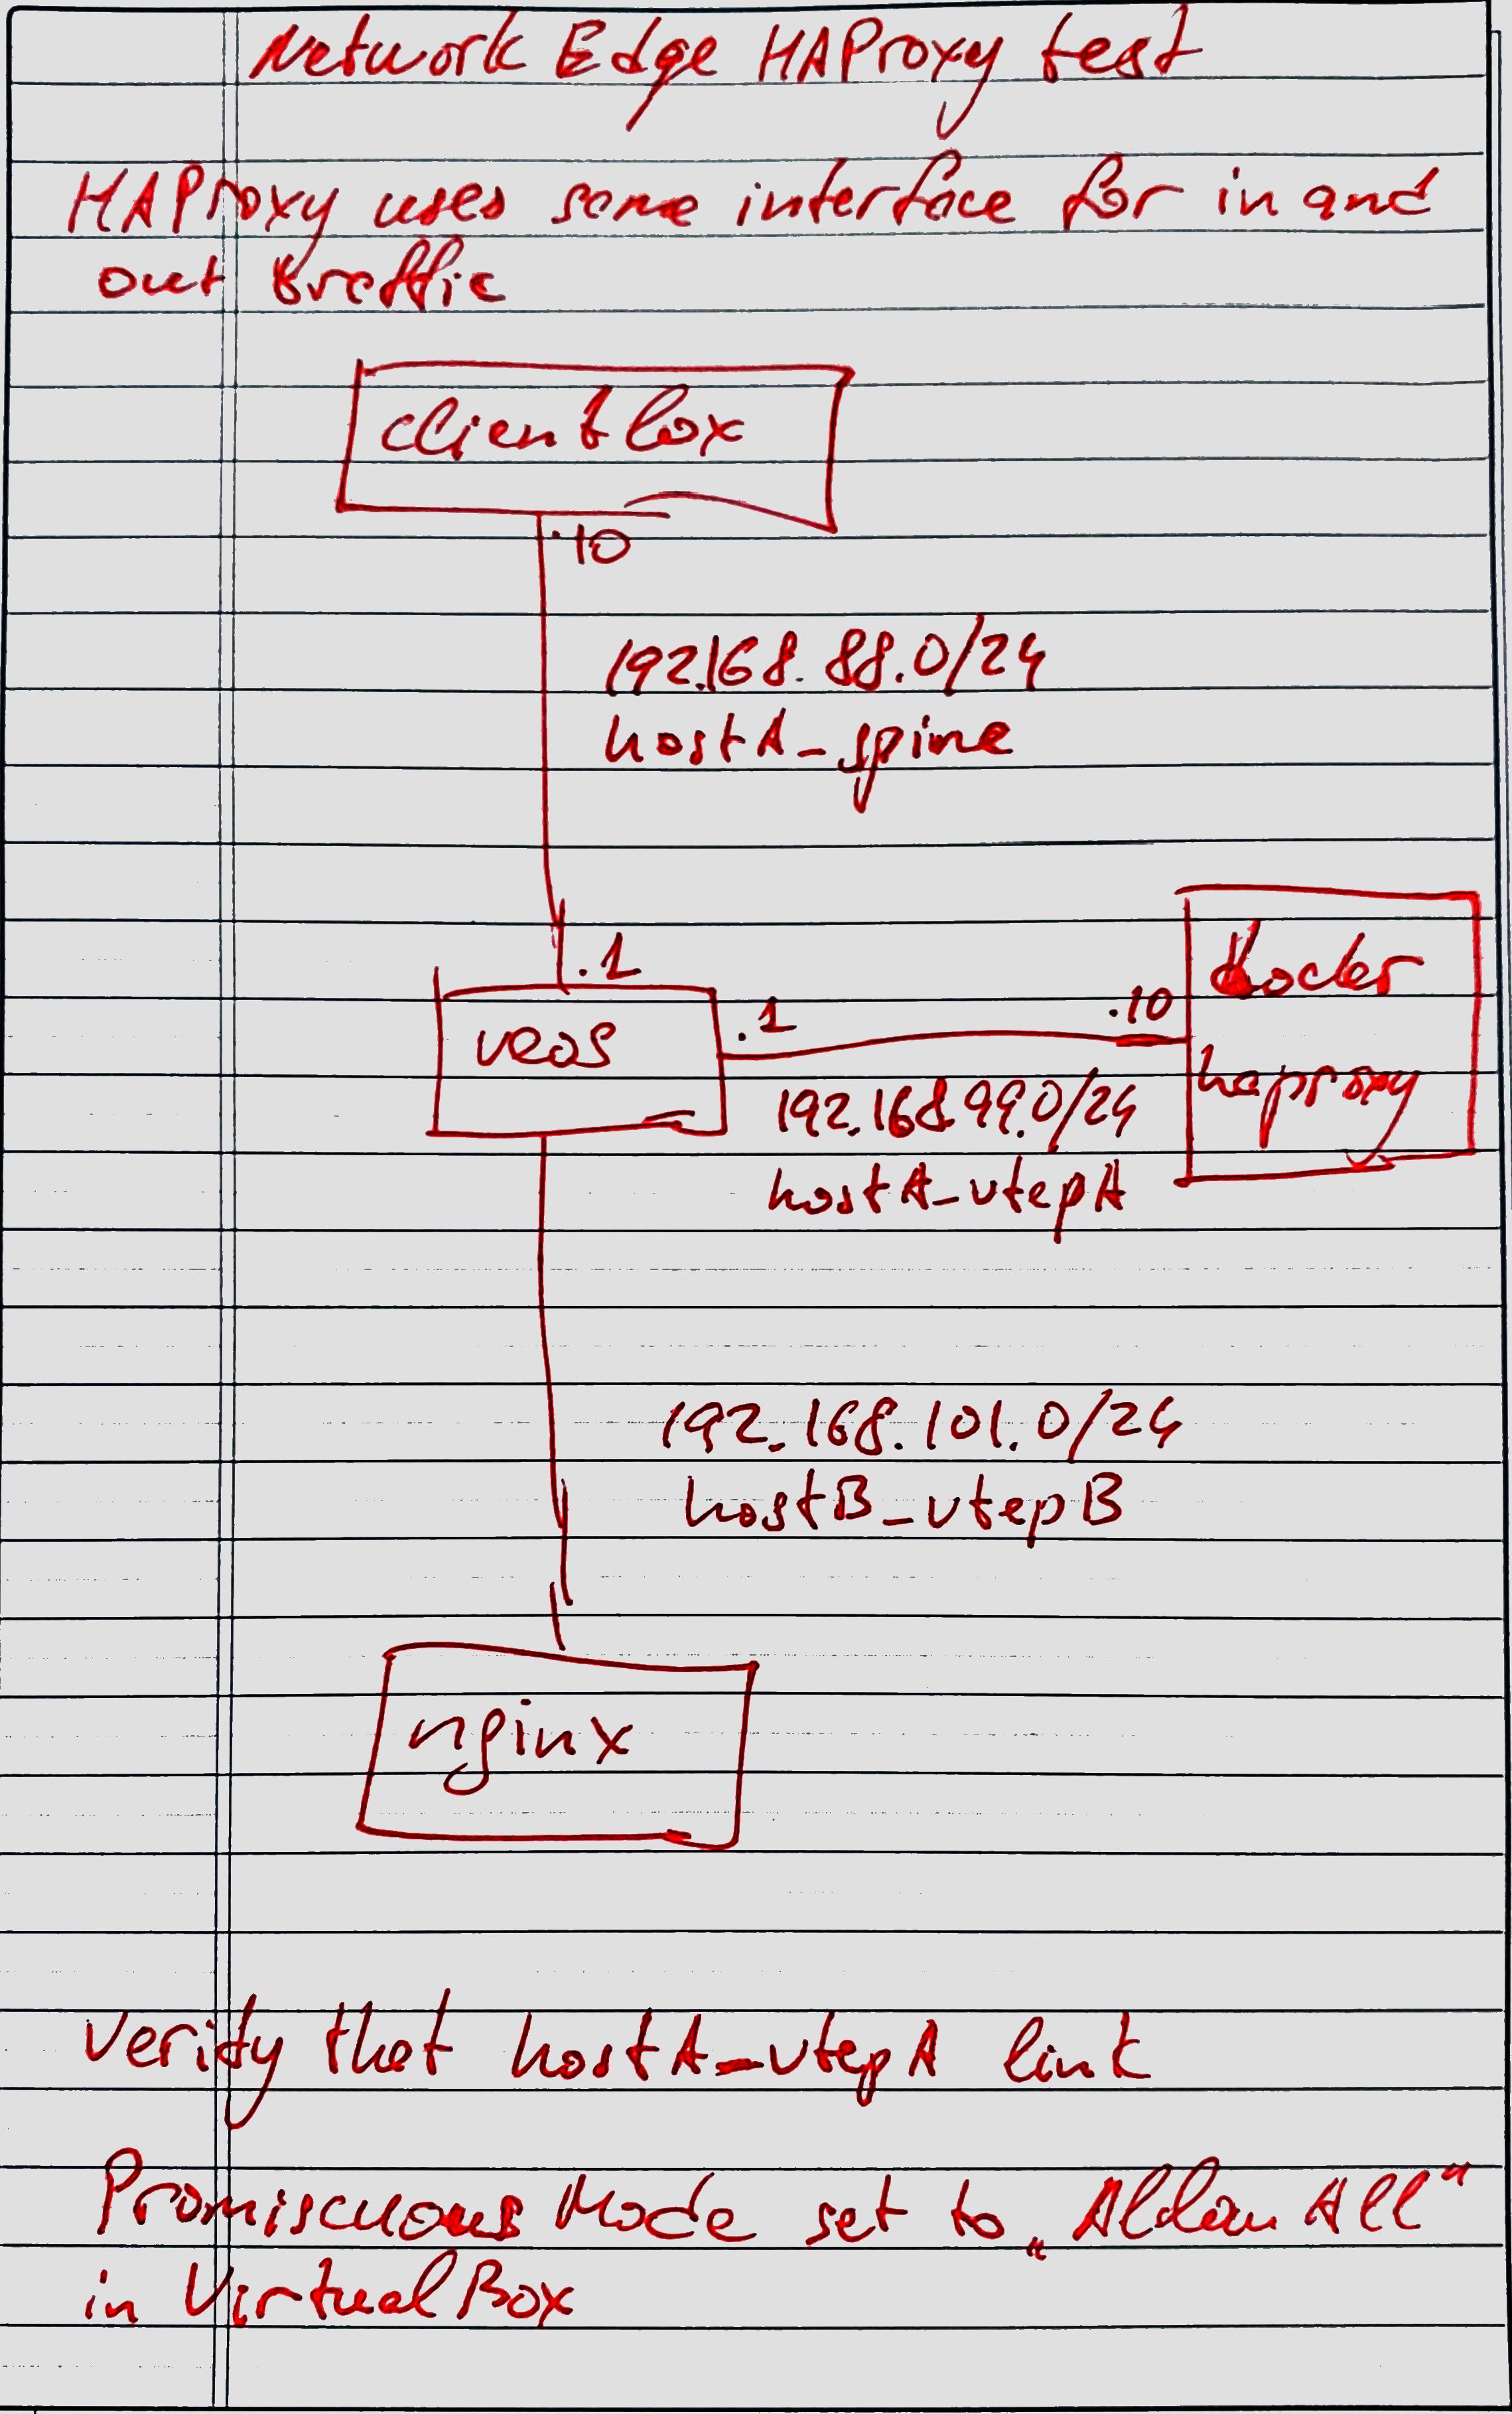 Network Edge HAProxy test
HAProxy uses same interface for in and
out traffic
clientbox
.10
192.168.88.0/24
hostA_spine
.1
docker
veos
.1
.10
haproxy
192.168.99.0/24
hostA_vtepA
192.168.101.0/24
hostB_vtepB
nginx
Verify that hostA_vtepA link
Promiscuous Mode set to „Allow All"
in VirtualBox